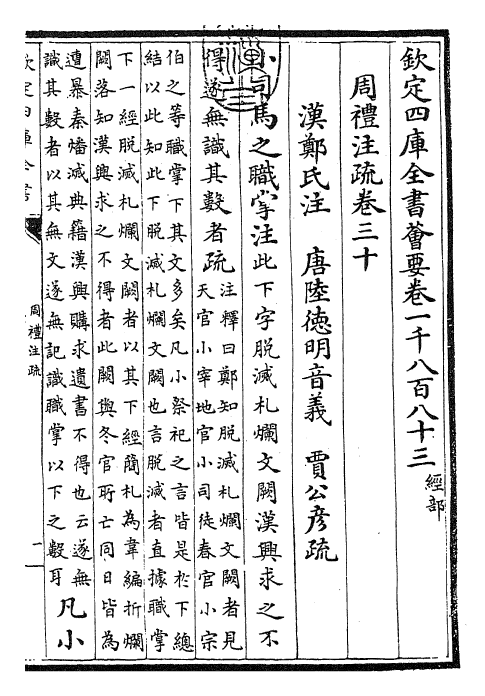 欽定四庫全書薈要卷一千八百八十三 經部
周禮注疏卷三十
漢鄭氏注 唐陸德明音義 賈公彥疏
小司馬之職掌注此下字脱滅札爛文闕漢興求之不
得遂無識其數者疏
注釋曰鄭知脱滅札爛文闕者見
天官小宰地官小司徒春官小宗
伯之等職掌下其文多矣凡小祭祀之言皆是於下總
結以此知此下脱滅札爛文闕也言脱滅者直據職掌
下一經脱滅札爛文闕者以其下經簡札為韋編折爛
闕落知漢興求之不得者此闕與冬官所亡同日皆為
遭暴秦燔滅典籍漢興購求遺書不得也云遂無
識其數者以其無文遂無記識職掌以下之數耳
凡小
欽定四庫全書
周禮注疏
一